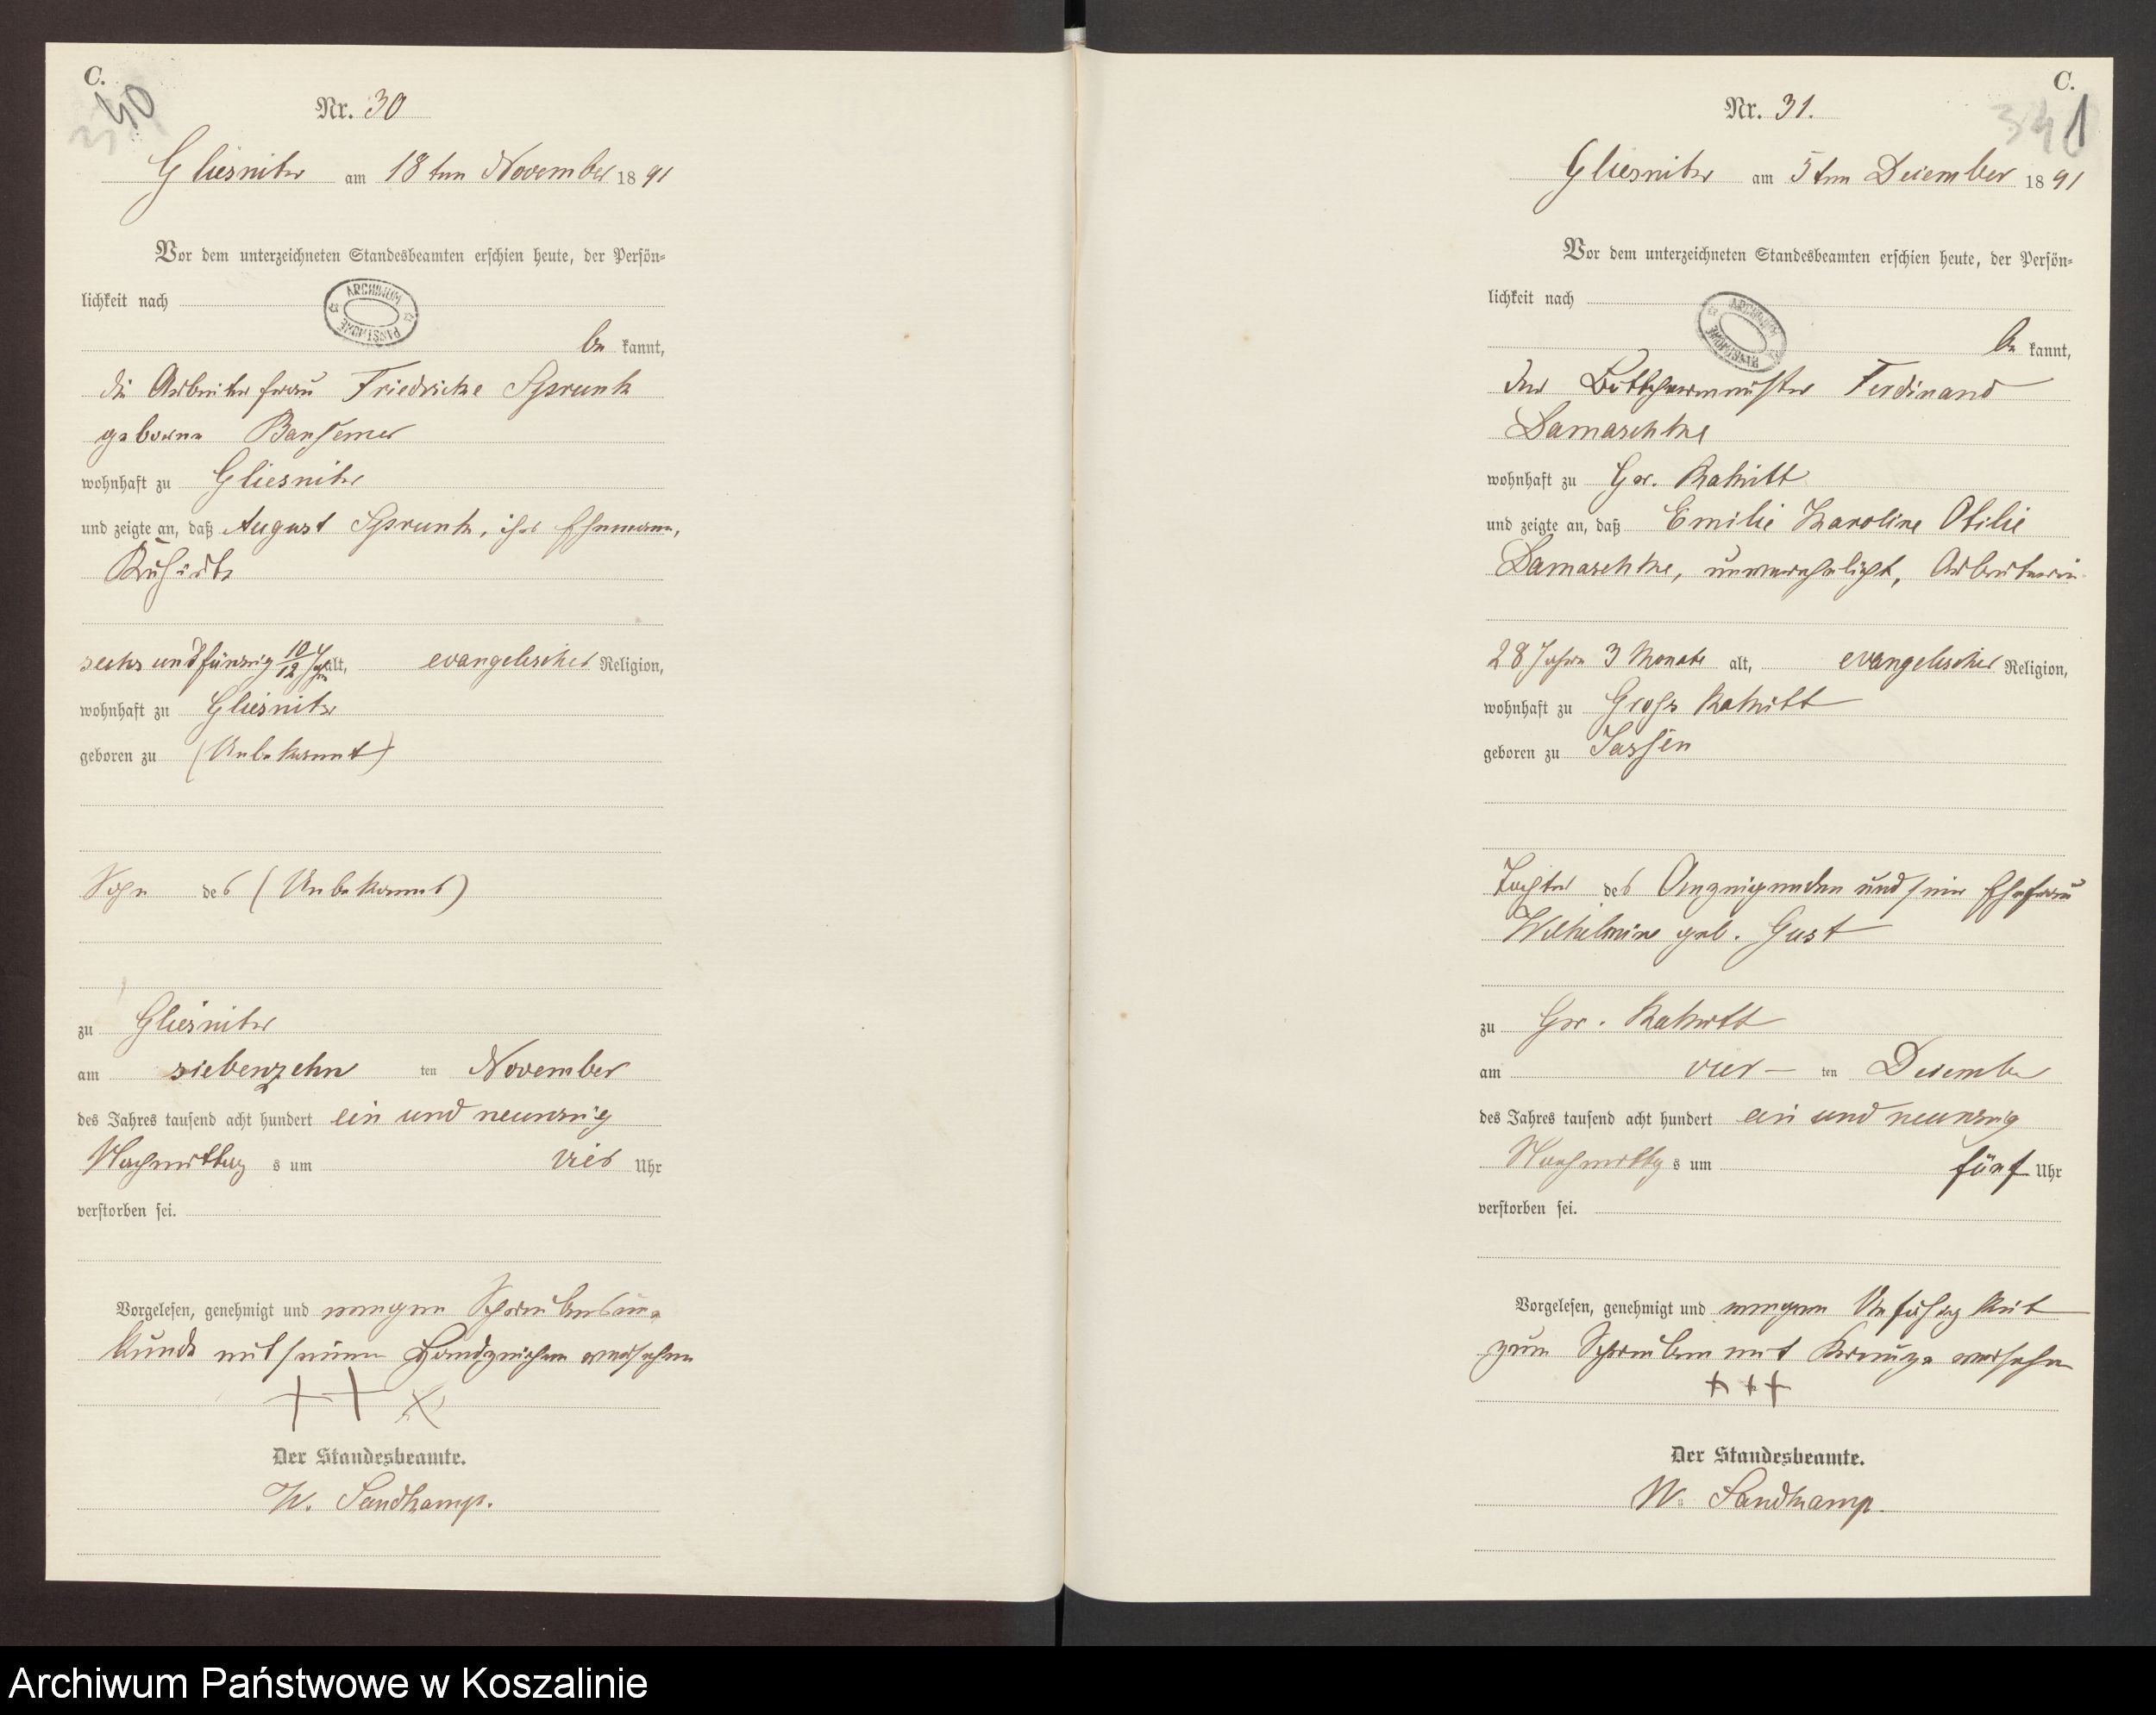 C.
40
Nr. 30
Gliesnitz am 18ten November 1891
Vor dem unterzeichneten Standesbeamten erschien heute, der Persön-
lichkeit nach
be kannt,
die Arbeiterfrau Friedricke Sprunk
geborne Bansemer
wohnhaft zu Gliesnitz
und zeigte an, daß August Sprunk, ihr Ehemann,
Kuhirte
sechs und fünzig 10/12 Jahr alt, evangelischer Religion,
wohnhaft zu Gliesnitz
geboren zu (Unbekannt)
Sohn des (Unbekannt)
zu Gliesnitz
am siebenzehn ten November
des Jahres tausend acht hundert ein und neunzig
Nachmittag s um vier Uhr
verstorben sei.
Vorgelesen, genehmigt und wegen Schreibensun-
kunde mit seinem Handzeichen versehen
+ + x
Der Standesbeamte.
W. Sandkamp.
C.
341
Nr. 31.
Gliesnitz am 5ten Dezember 1891
Vor dem unterzeichneten Standesbeamten erschien heute, der Persön-
lichkeit nach
be kannt,
der Böttchermeister Ferdinand
Damaschke
wohnhaft zu Gr. Rakitt
und zeigte an, daß Emilie Karoline Otilie
Damaschke, unverehelicht, Arbeiterin
28 Jahre 3 Monate alt, evangelischer Religion,
wohnhaft zu Gross Rakitt
geboren zu Jassen
Tochter des Anzeigenden und seiner Ehefrau
Wilhelmine geb. Gust
zu Gr. Rakitt
am vier – ten Dezember
des Jahres tausend acht hundert ein und neunzig
Nachmittag s um fünf Uhr
verstorben sei.
Vorgelesen, genehmigt und wegen Unfähigkeit
zum Schreiben mit Kreuze versehen
+ + +
Der Standesbeamte.
W. Sandkamp.
ARCHIWUM PAŃSTWOWE
ARCHIWUM PAŃSTWOWE
Archiwum Państwowe w Koszalinie